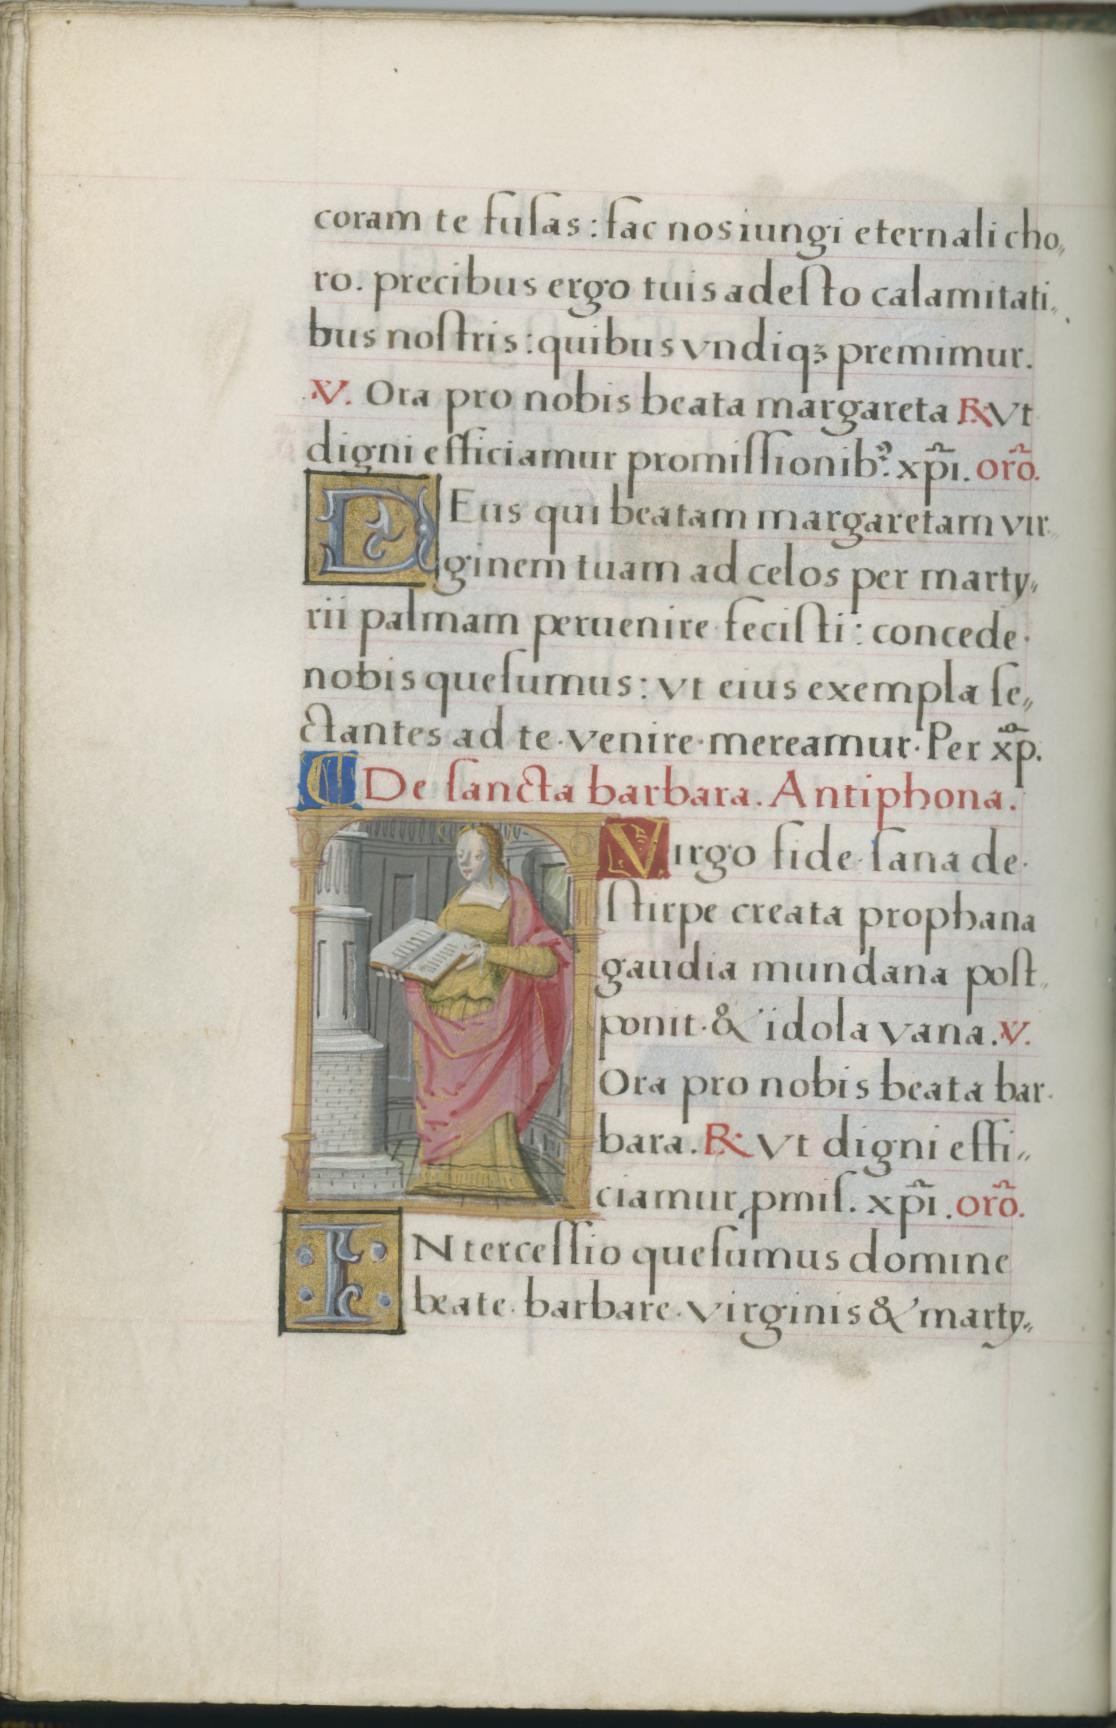 coram te fusas: fac nos iungi eternali cho„
ro. precibus ergo tuis adesto calamitati„
bus nostris: quibus vndiqꝫ premimur.
℣. Ora pro nobis beata margareta ℟ Vt
digni efficiamur promissionibꝰ. xp̄i. orō.
DEus qui beatam margaretam vir
ginem tuam ad celos per marty„
rii palmam peruenire fecisti: concede
nobis quesumus: vt eius exempla se„
ctantes ad te venire mereamur. Per xp̄.
¶ De sancta barbara. Antiphona.
Virgo fide sana de
stirpe creata prophana
gaudia mundana post„
ponit & idola vana. ℣.
Ora pro nobis beata bar
bara. ℟ Vt digni effi„
ciamur ꝓmis. xp̄i. orō.
INtercessio quesumus domine
beate barbare virginis & marty„